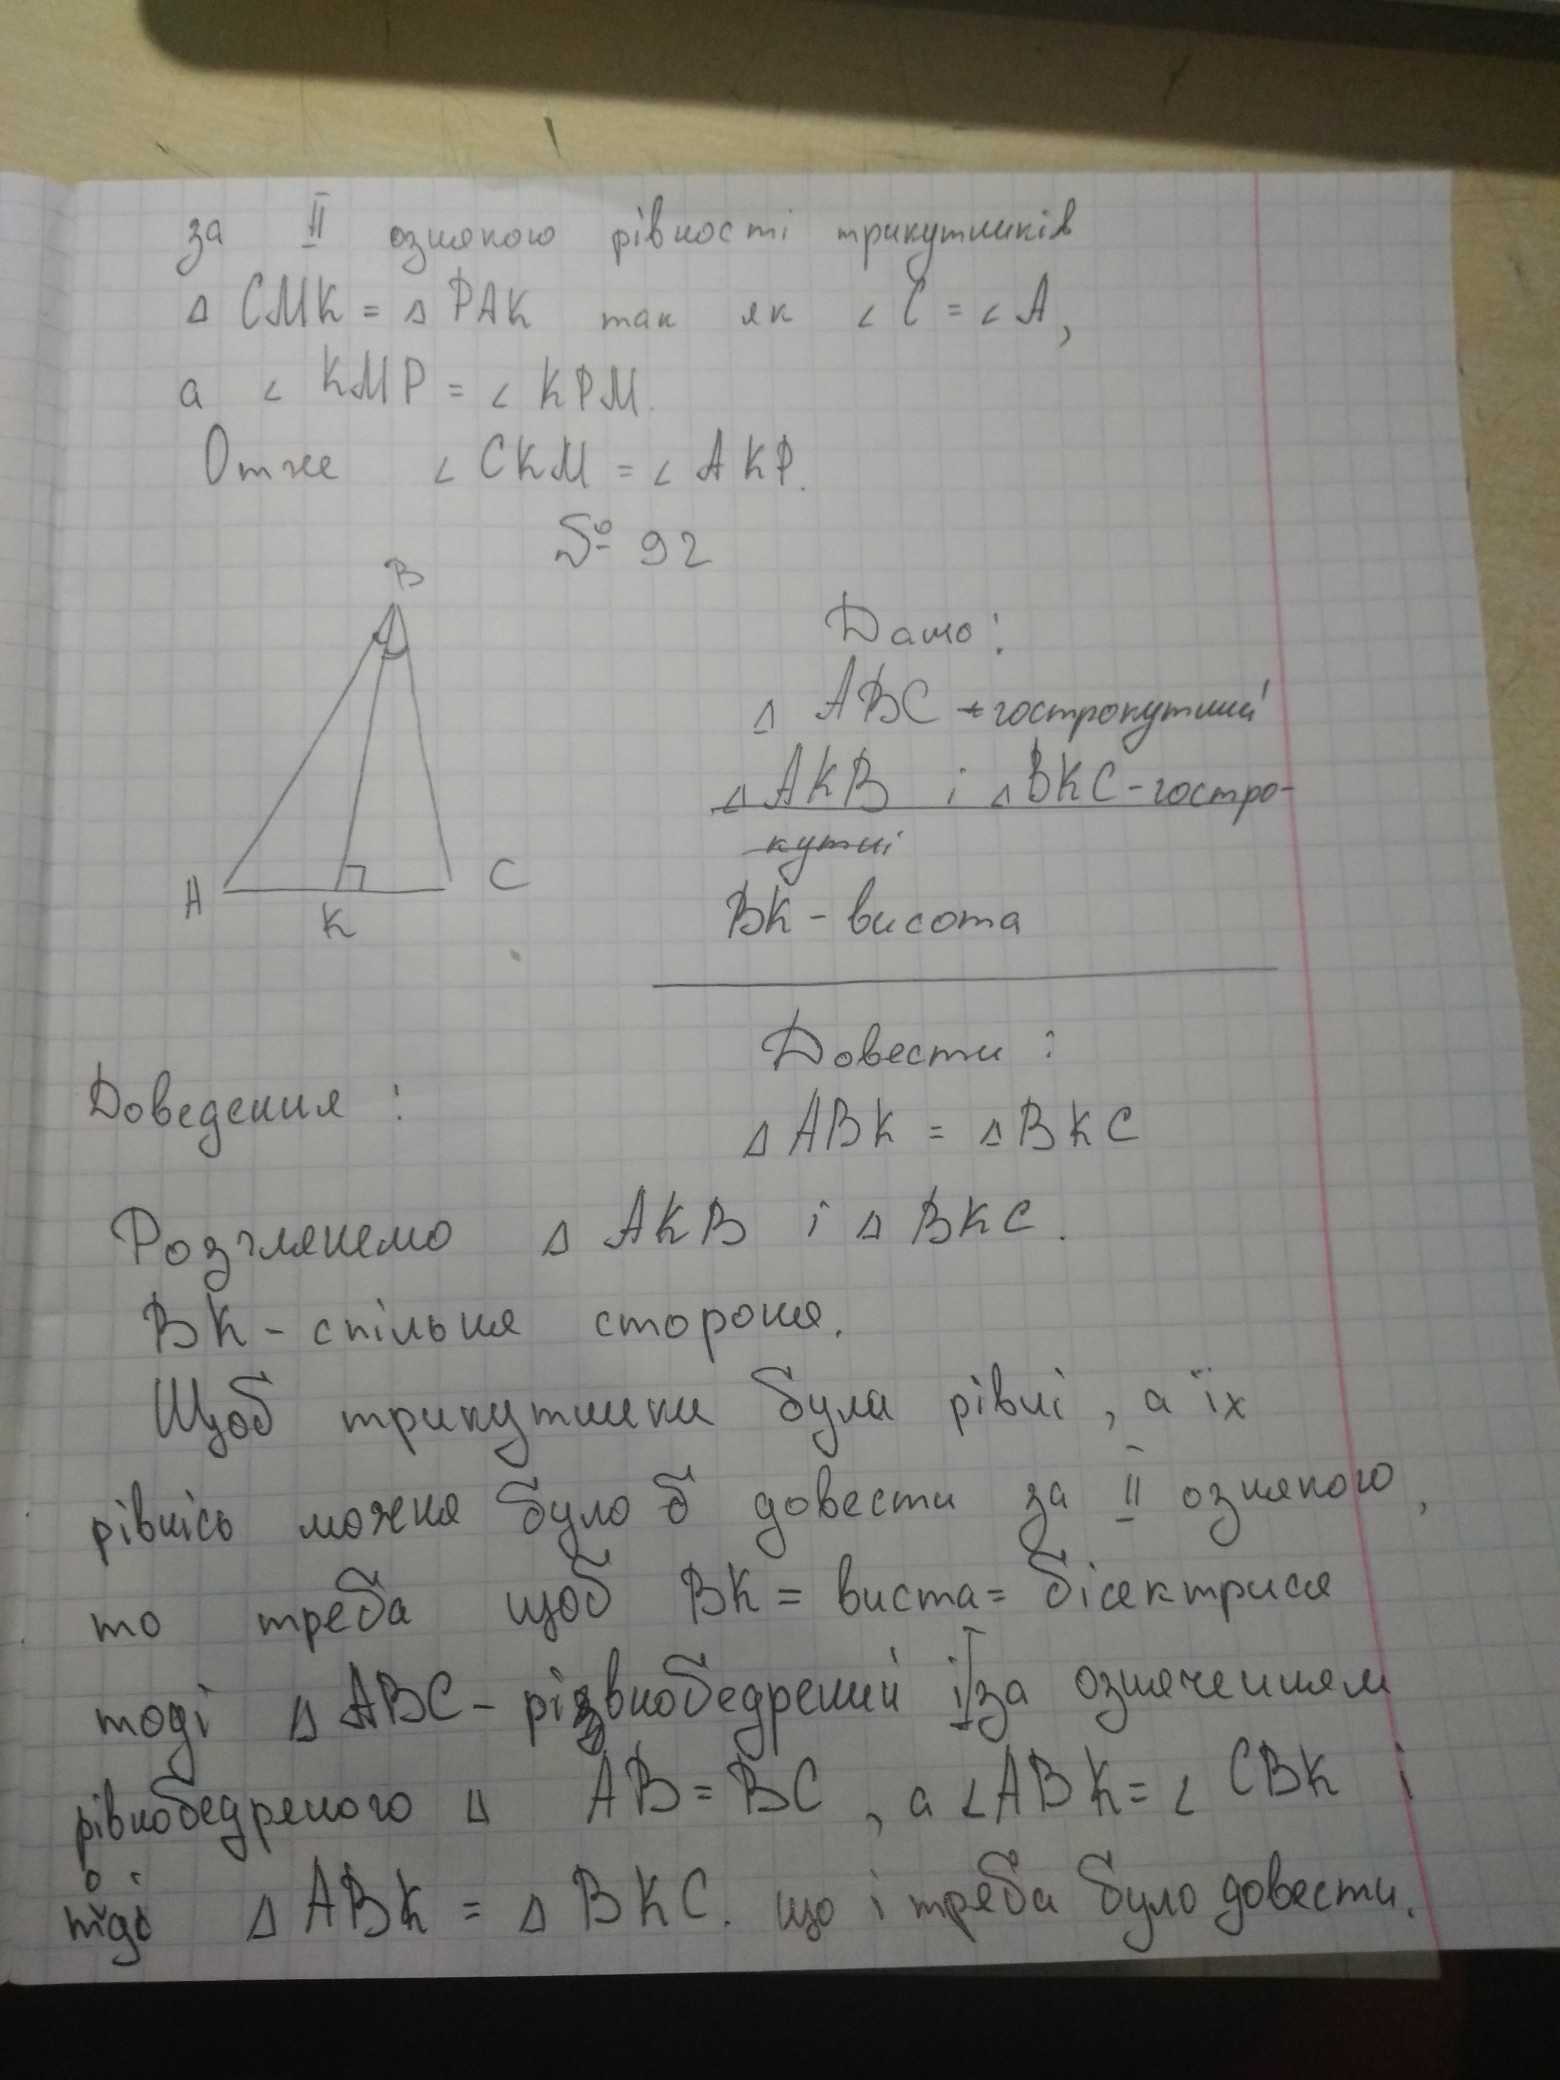 за II ознакою рівності трикутників
△ CMK = △ PAK так як ∠ C = ∠ A,
а ∠ KMP = ∠ KPM.
Отже ∠ CKM = ∠ AKP.
№ 92
B
A
K
C
Дано:
△ ABC - гострокутний
△ AKB і △ BKC - гостро-
кутні
BK - висота
Довести :
△ ABK = △ BKC
Доведення :
Розглянемо △ AKB і △ BKC.
BK - спільна сторона.
Щоб трикутники були рівні, а їх
рівнісь можна було б довести за II ознакою,
то треба щоб BK = виста = бісектриса
тоді △ ABC - рівнобедрений і за означенням
рівнобедреного △ AB = BC, а ∠ ABK = ∠ CBK і
тоді △ ABK = △ BKC. що і треба було довести.